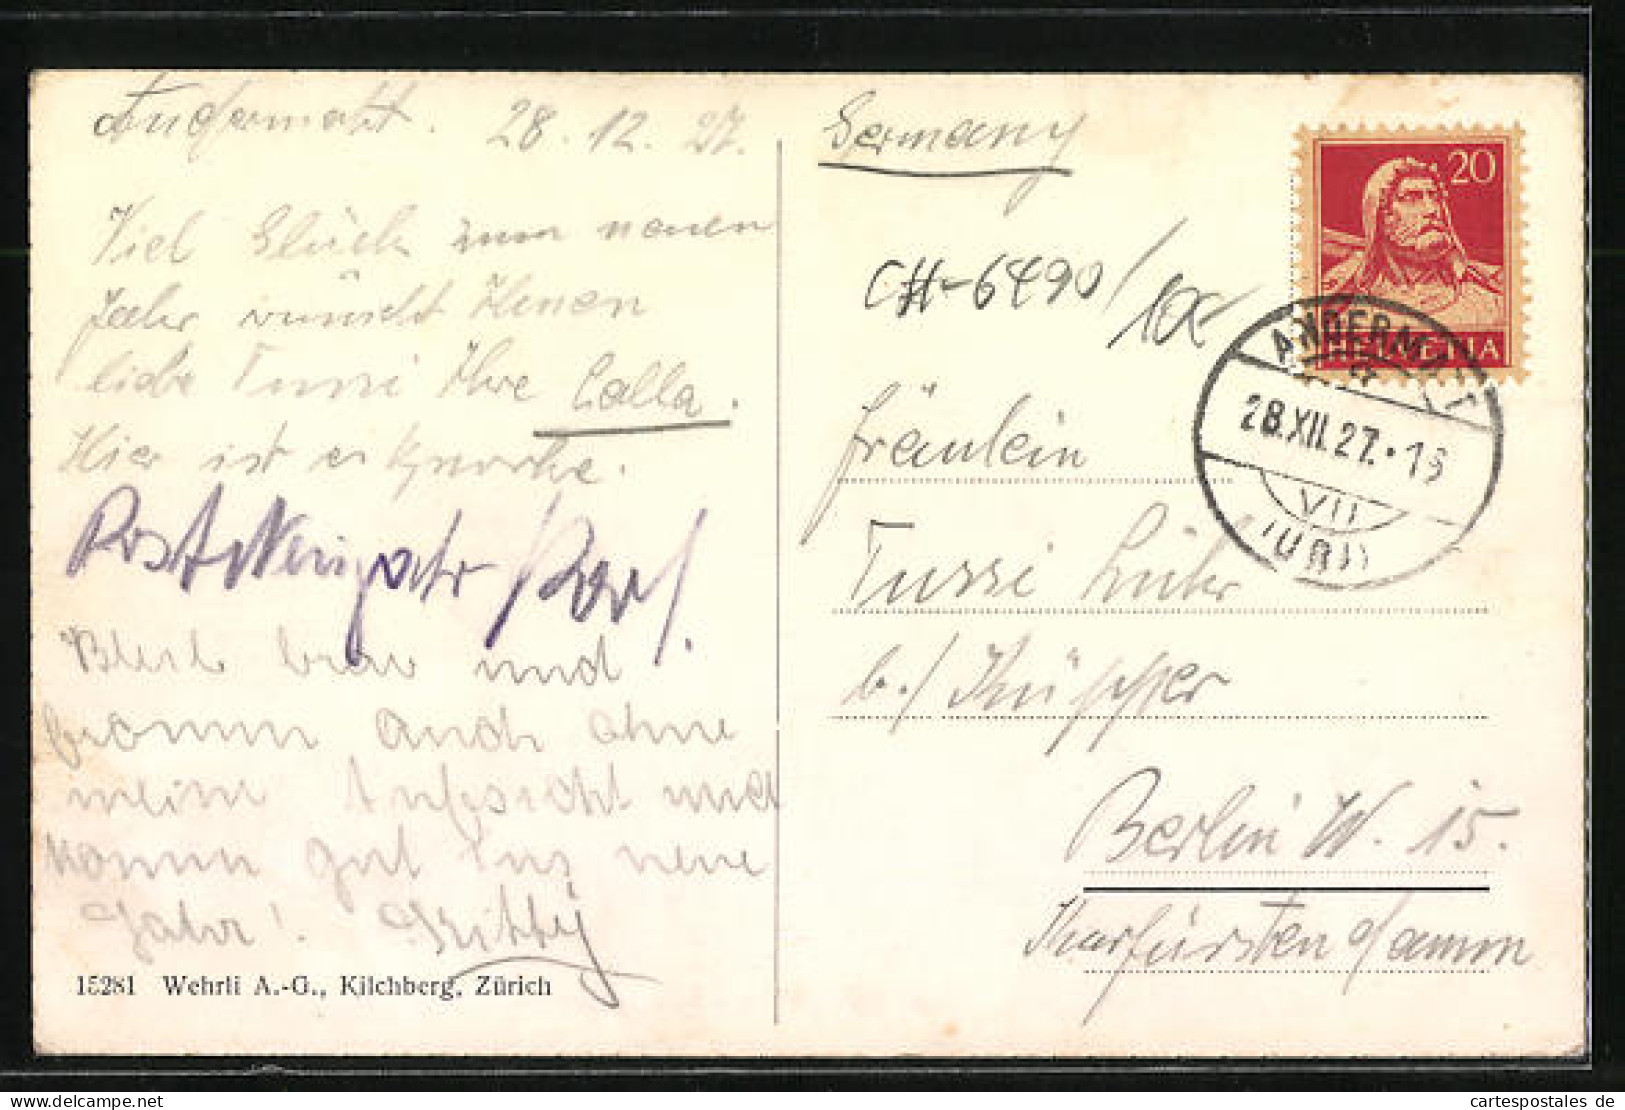 Andermatt. 28.12.27.
Viel Glück zum neuen
Jahr wünscht Ihnen
liebe Tussi Ihre Calla.
Hier ist es
Bleib brav und
fromm auch ohne
meine Aufsicht und
komm gut ins neue
Jahr! Kitty
15281 Wehrli A.-G., Kilchberg, Zürich
Germany
CH-6490/
20
HELVETIA
ANDERMATT
28.XII.27.
VII
(URI)
Fräulein
Tussi Lühr
b./ Küpper
Berlin W. 15.
Kurfürstendamm
cartespostales de